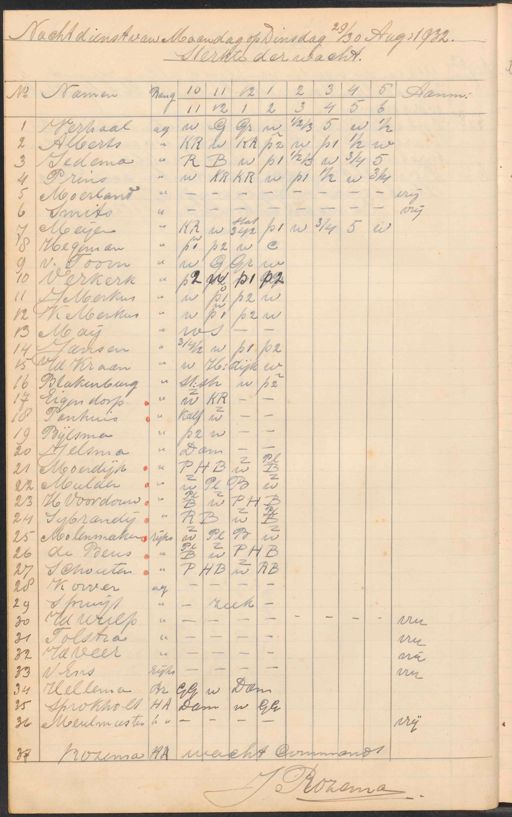 Nachtdienst van Maandag op Dinsdag 29/30 Aug: 1932.
Sterkte der wacht.
No Namen Rang 10 11 12 1 2 3 4 5 Aanm:
11 12 1 2 3 4 5 6
1 Verhaal ag w G Gr w 1/2/3 5 w 1/2
2 Alberts " KR w KR p2 w p1 1/2 w
3 Jedema " R B w p1 1/2/3 w 3/4 5
4 Prins " w KR KR w p1 1/2 w 3/4
5 Moerland " – – – – – – – – vrij
6 Smits " – – – – – – – – vrij
7 Meijer " KR w p1 w 3/4 5 w
8 Hegeman " p1 p2 w C
9 v. Toorn " w G Gr w
10 Verkerk " p2 w p1 p2
11 Merkus " w p1 p2 w
12 Merkus " w p1 p2 w
13 Maij " w S – –
14 Jansen " 3/4/2 w p1 p2
15 vd Kraan " w H: dijk w
16 Blakenburg " st: st: w p2
17 Eigendorp " w KR – –
18 Penhuis " Kalf w – –
19 Bijlsma " p2 w – –
20 Jelsma " Dam – –
21 Moerdijk " P H B w B
22 Mulder " w Pl B w
23 H Voordouw " B w P H B
24 Sybrandij " R B w B
25 Molenmaker rijks w Pl B w
26 de Beus " B w P H B
27 Schouten " P H B w RB
28 Kover ag – – – –
29 Spruijt " – ziek –
30 vd Wulp " – – – – – – – – vrij
31 Tolstra " – – – – vrij
32 vd Veer " – – – – vrij
33 v Ens Rijks – – – – vrij
34 Hellema Br GG w Dam
35 Sprokholt HA Dam w GG
36 Meulmeester " – – – – vrij
37 Rozema HA wacht Commandt
J Rozema.